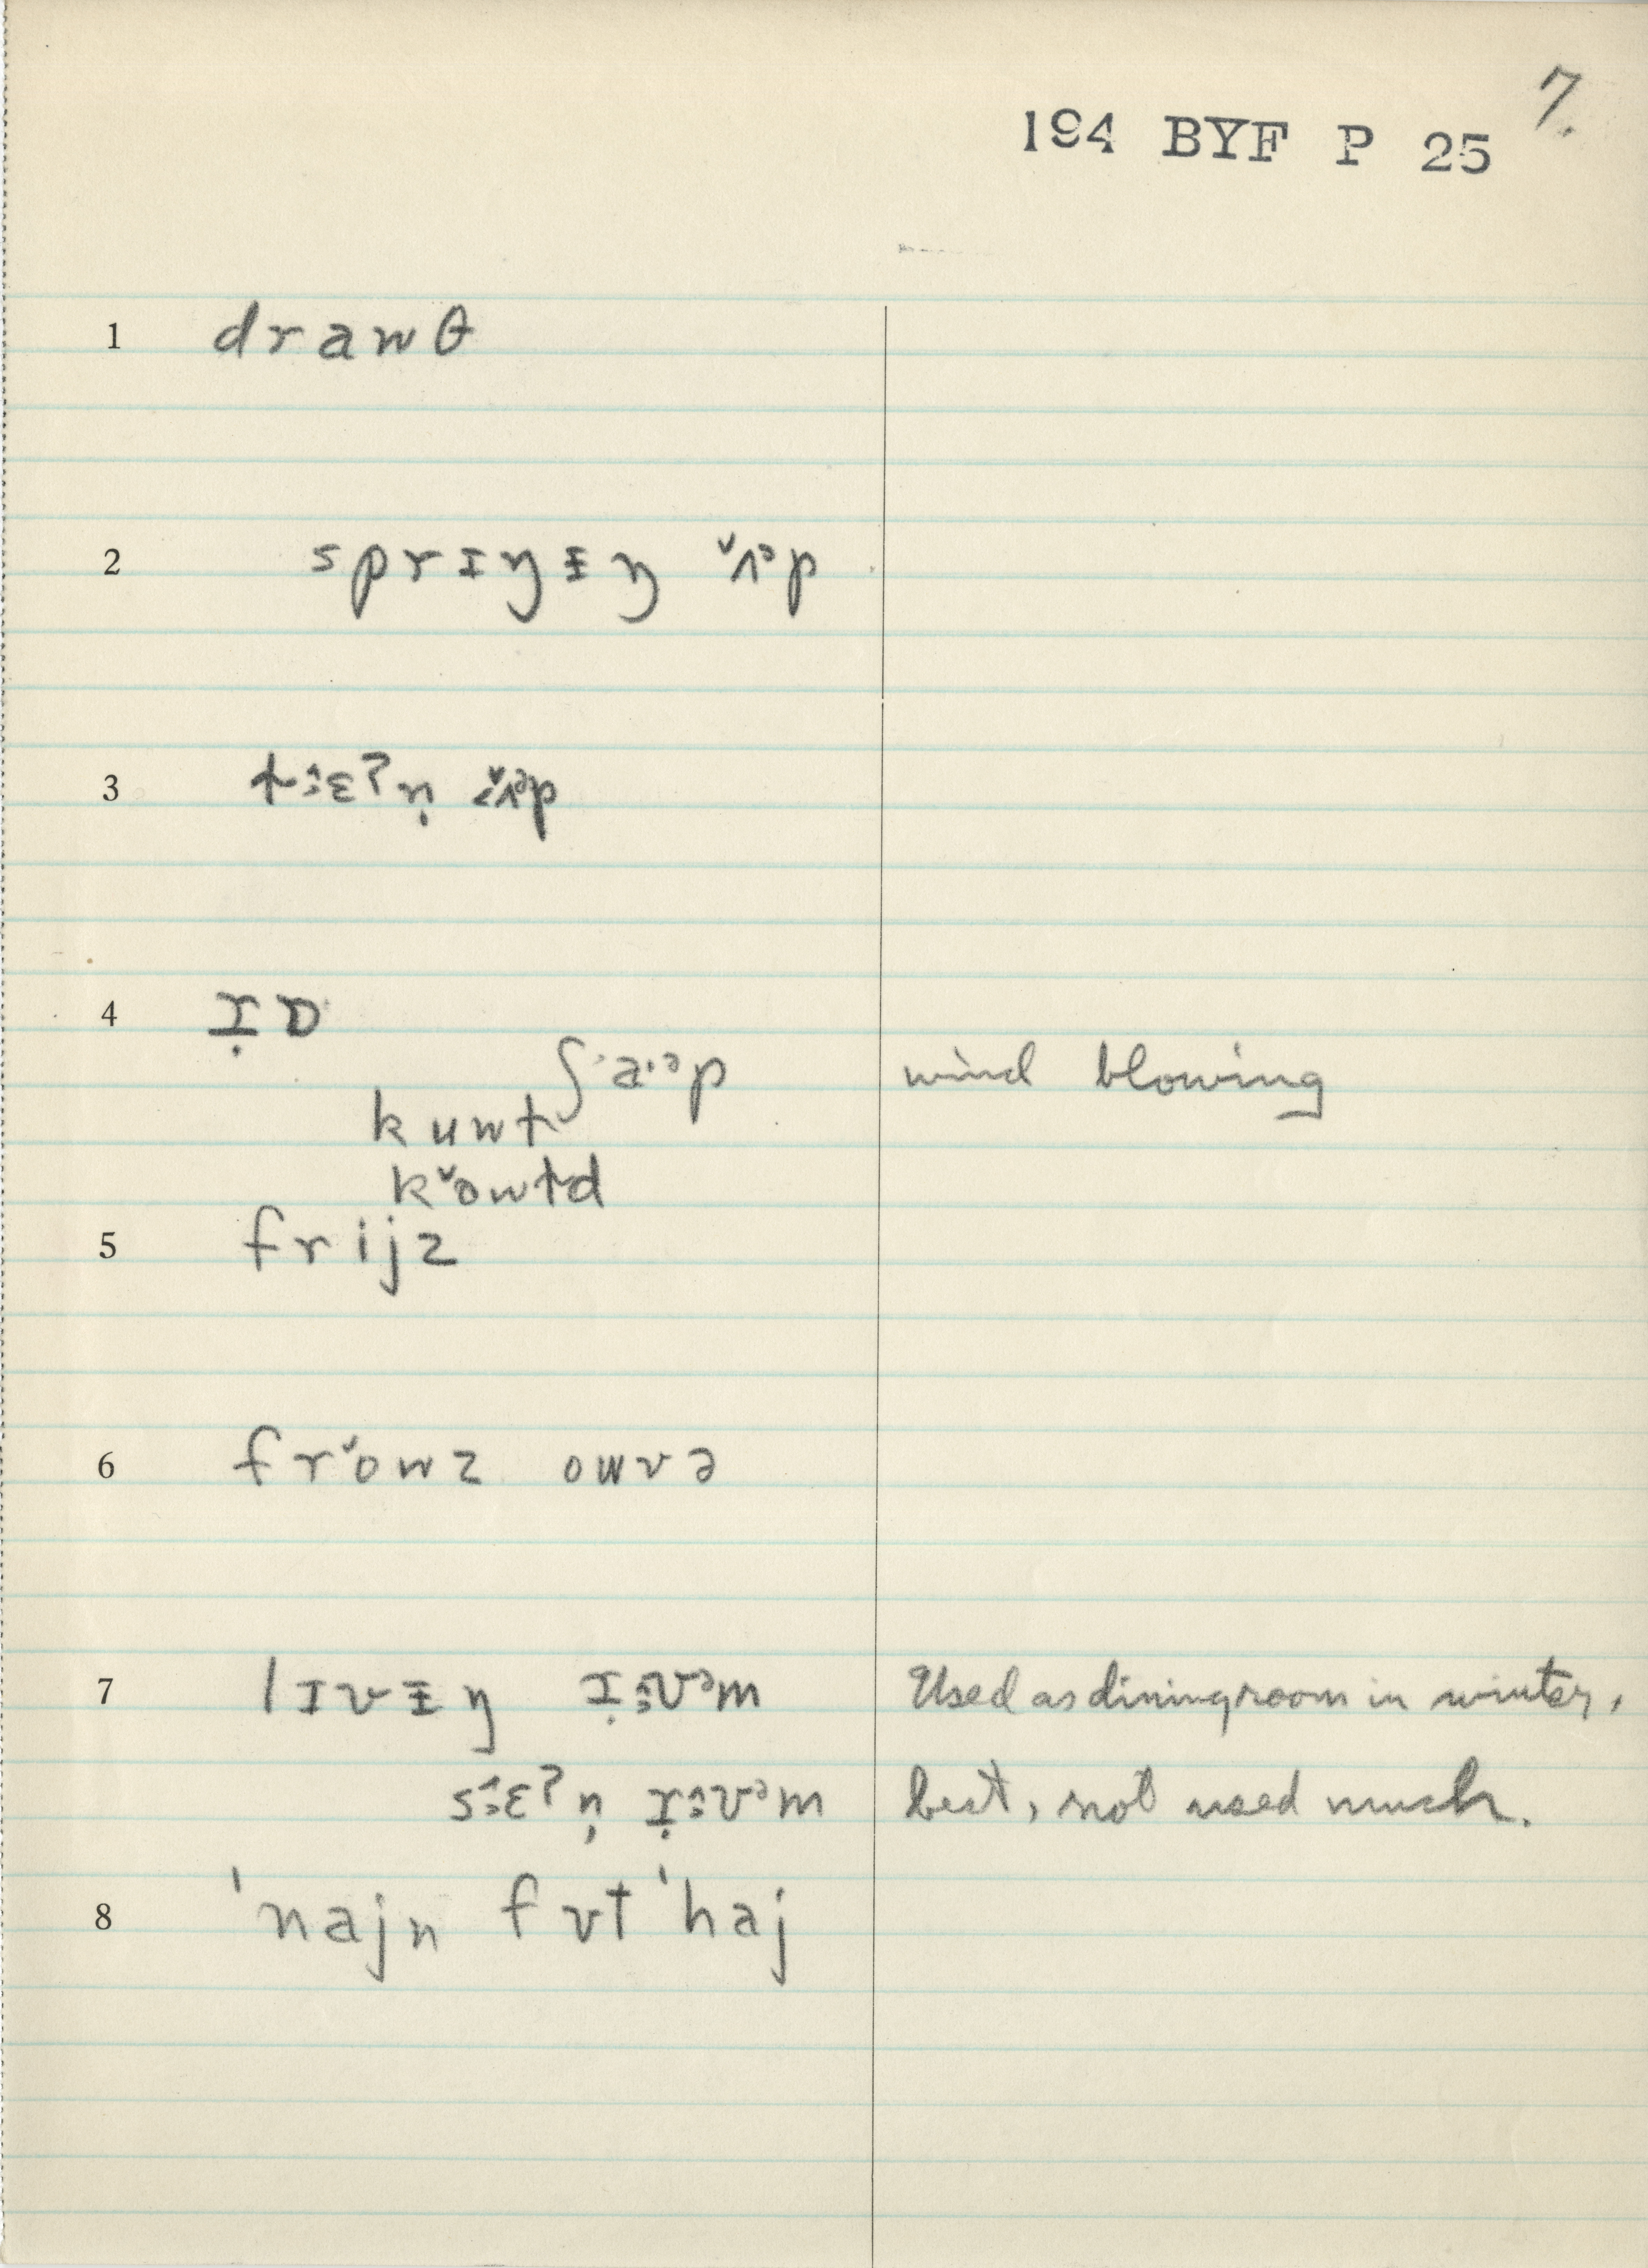 7.
194 BYF P 25
1 drawθ
2 sprɪŋɨŋ ˇʌᵊp
3 tɛʔn̩ ˇʌᵊp
4
ʃaᵊp wind blowing
kuwt
kˇowtd
5 frijz
6 frˇowz owvə
7 lɪvɨŋ ʊᵊm Used as diningroom in winter.
sɛʔn̩ ʊᵊm best, not used much.
8 ˈnajn fʊt ˈhaj